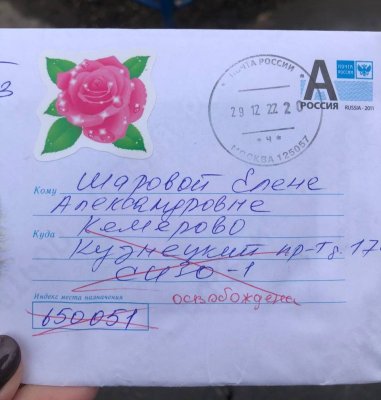 ПОЧТА РОССИИ
29 12 22 20
* Ч *
МОСКВА 125057
ПОЧТА РОССИИ
А
РОССИЯ
RUSSIA
З
Кому Шаровой Елене
Александровне
Куда Кемерово
Кузнецкий пр-т д. 17
СИЗО-1
Индекс места назначения
освобождена
650051